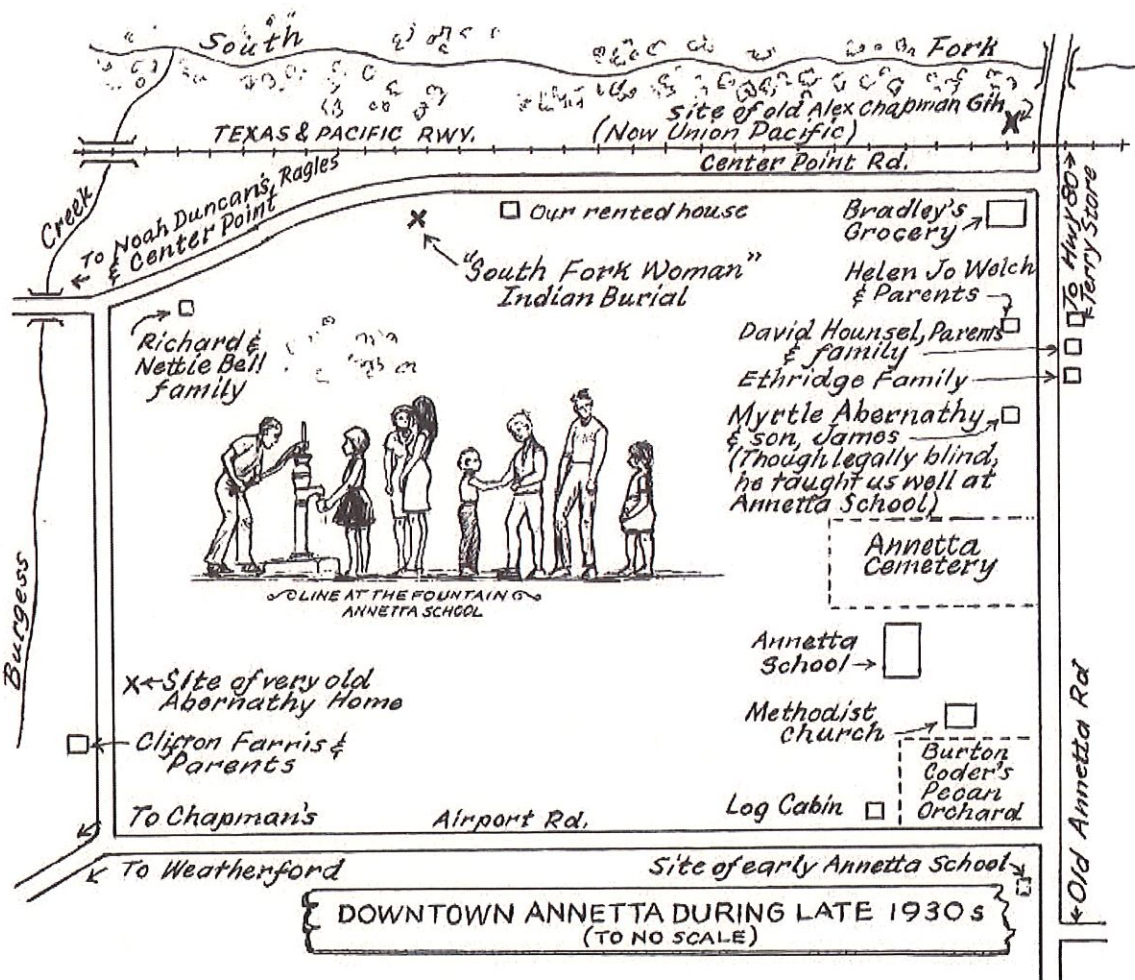 South Fork
site of old Alex Chapman Gin
TEXAS & PACIFIC RWY. (Now Union Pacific)
Center Point Rd.
Creek
To Noah Duncan's, Ragles
& Center Point
Our rented house
Bradley's
Grocery
"South Fork Woman"
Indian Burial
Helen Jo Welch
& Parents
To Hwy 80
& Terry Store
Richard &
Nettie Bell
family
David Hounsel, Parents
& family
Ethridge Family
Myrtle Abernathy
& son, James
(Though legally blind,
he taught us well at
Annetta School)
Annetta
Cemetery
LINE AT THE FOUNTAIN
ANNETTA SCHOOL
Burgess
Annetta
School
Site of very old
Abernathy Home
Methodist
church
Clifton Farris &
Parents
Burton
Coder's
Pecan
Orchard
Log Cabin
Old Annetta Rd
To Chapman's
Airport Rd.
To Weatherford
Site of early Annetta School
DOWNTOWN ANNETTA DURING LATE 1930s
(TO NO SCALE)